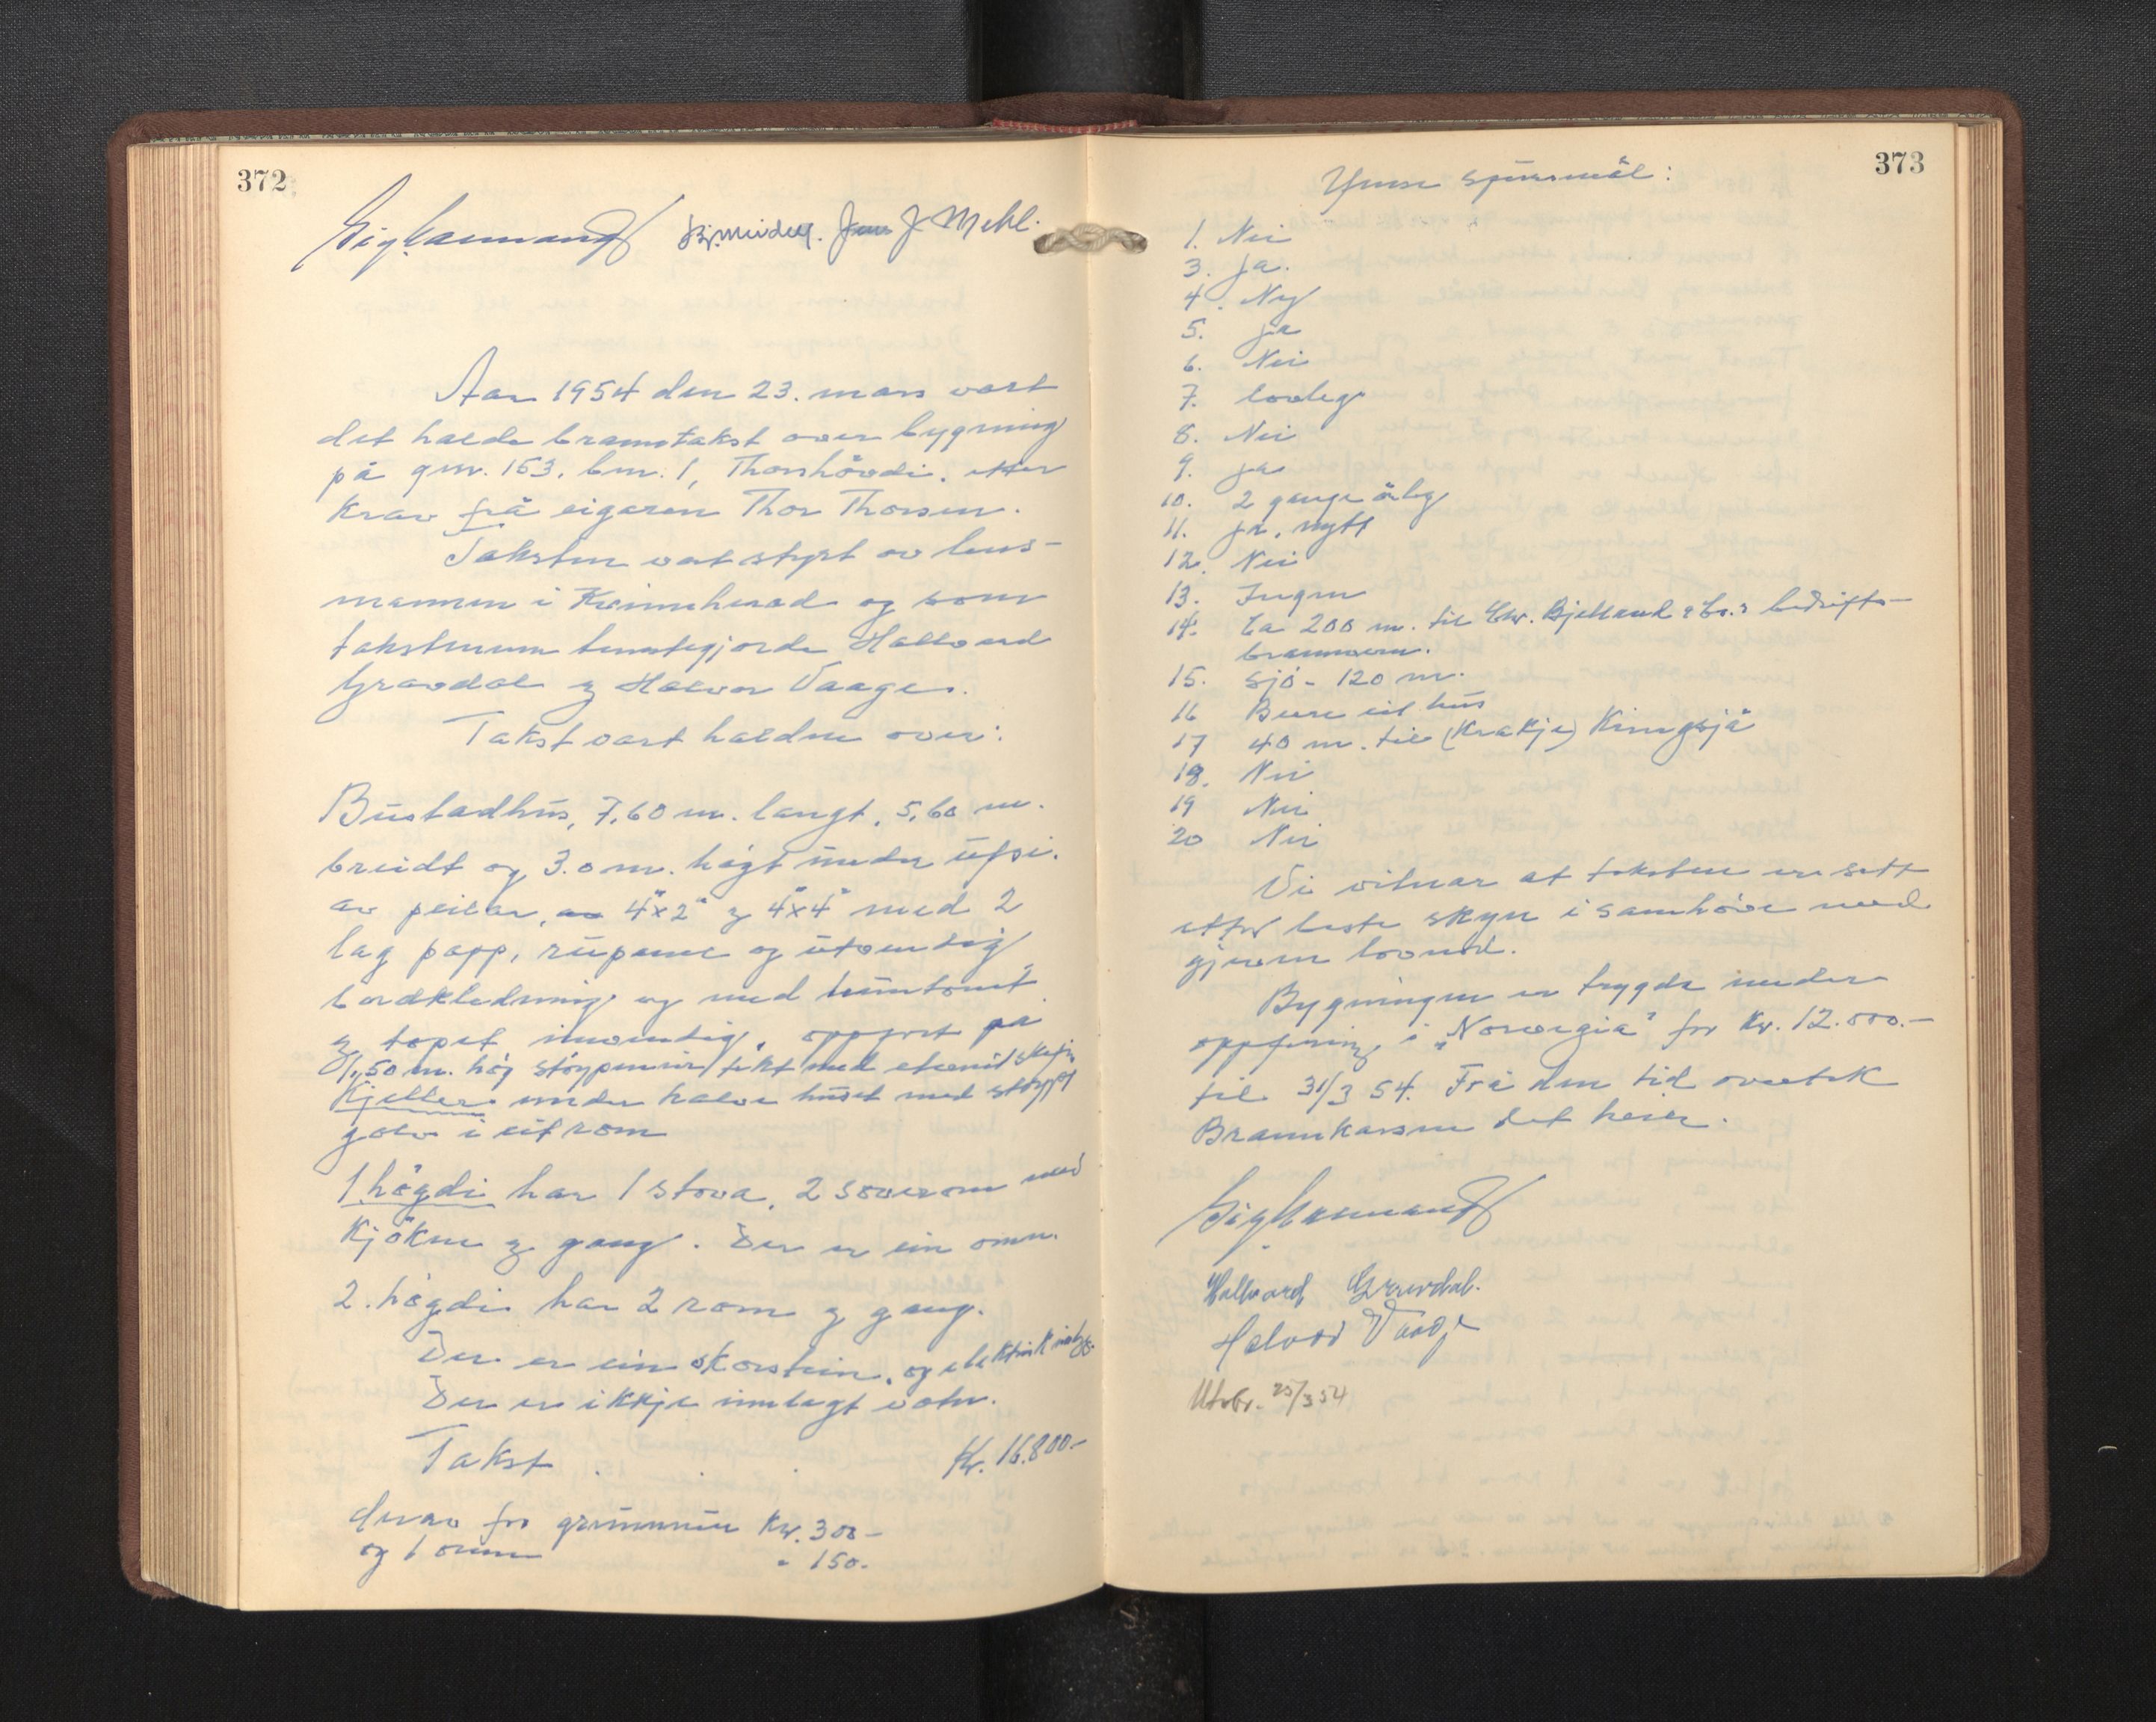 372
Jens J Mehl.
Aar 1954 den 23. mars vart
det halde branntakst over bygning
på gnr. 153. bnr. 1, Thorshövdi. etter
krav frå eigaren Thor Thorsen.
Taksten vart styrt av lens-
mannen i Kvinnherad og som
takstmenn tenestegjorde Hallvard
Gravdal og Halvor Vaage.
Takst vart halden over:
Bustadhus, 7,60 m. langt, 5,60 m.
breidt og 3.0 m. högt under ufsi.
av peilar, av 4"x2" og 4"x4" med 2
lag papp, rupanel og utvendig
bordkledning og med
og tapet innvendig, oppført på
1,50 m. høg støypemur tekt med eternitskifer
Kjellar under halve huset med støypt
golv i eit rom
1 högdi har 1 stova, 2 soverom med
Kjöken og gang. Der er ein omn.
2. högdi har 2 rom og gang.
Der er ein skorstein, og elektrisk
Der er ikkje innlagt vatn.
Takst . . . Kr. 16.800.-
derav for grunnmur Kr. 300-
og 1 omn " 150.
373
Ymse spursmål:
1. Nei
3. Ja.
4. Ny
5. ja
6. Nei
7. lovleg
8. Nei
9. ja
10. 2 gange årleg
11. ja, nytt
12. Nei
13. Ingen
14. Ca 200 m. til Chr. Bjelland & Co.s bedrifts-
brannvern.
15. Sjö - 120 m.
16 Bere eit hus
17 40 m. til (Krakje) Kringsjå
18. Nei
19 Nei
20 Nei
Vi vitnar at taksten er sett
etter beste skyn i samhöve med
gjeven lovnad.
Bygningen er trygda under
oppføring i "Norvegia" for Kr. 12.000.-
til 31/3 54. Frå den tid overtek
Brannkassen det heile.
Hallvard Gravdal.
Halvor Vaage
Utskr. 25/3 54